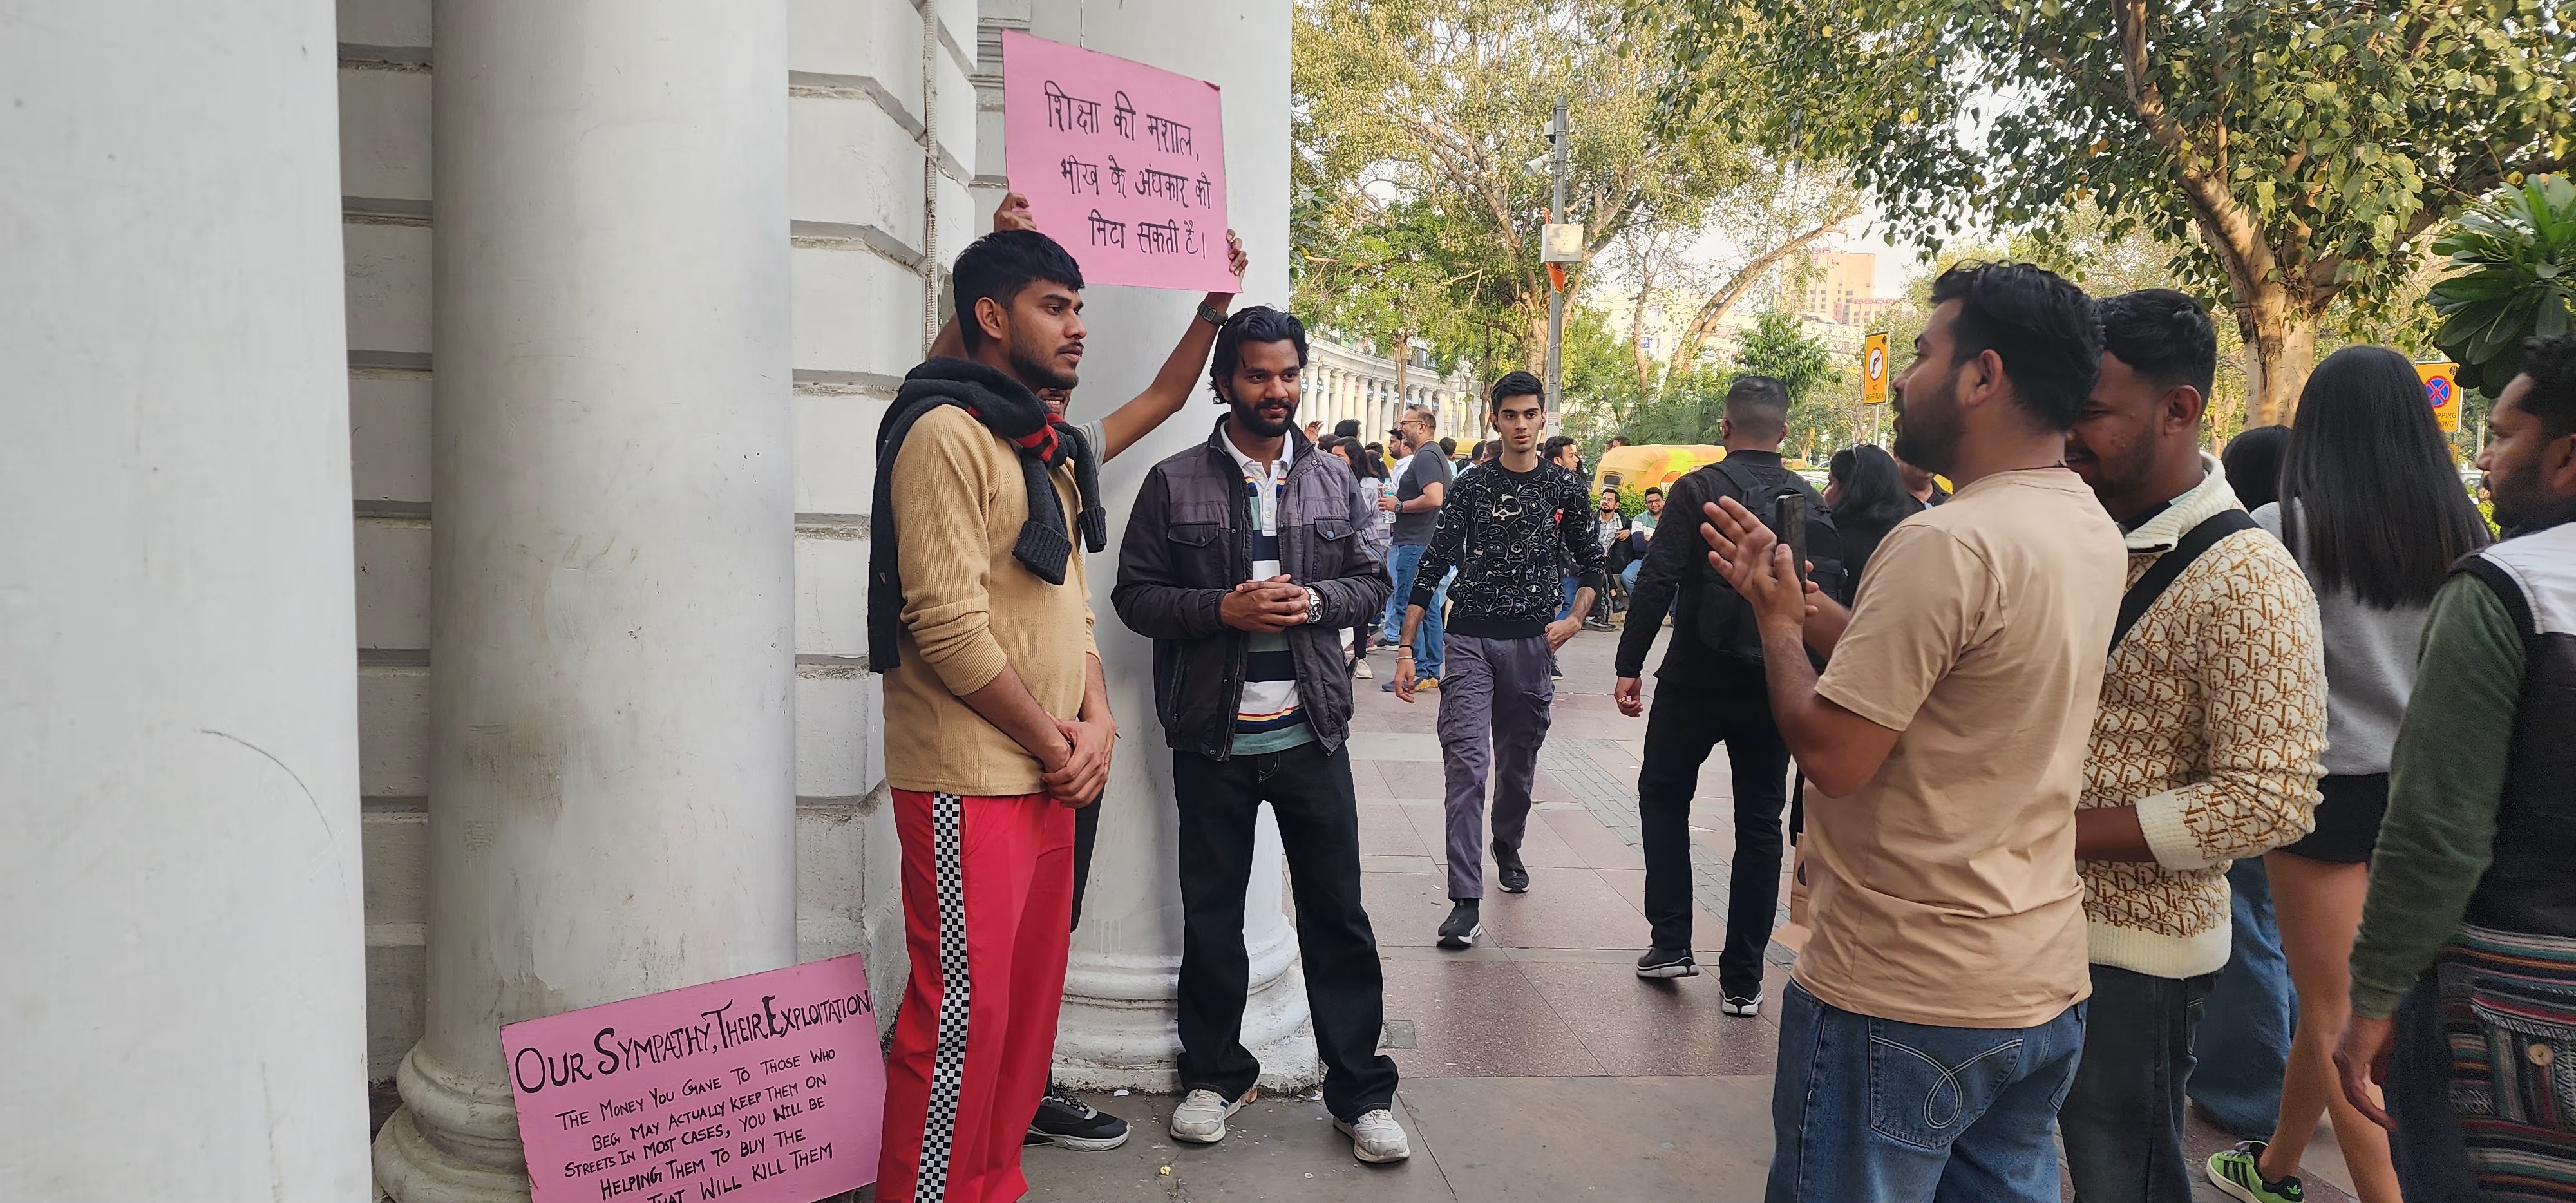 शिक्षा की मशाल,
भीख के अंघकार को
मिटा सकती है।
OUR SYMPATHY, THEIR EXPLOITATION
THE MONEY YOU GAVE TO THOSE WHO
BEG MAY ACTUALLY KEEP THEM ON
STREETS IN MOST CASES, YOU WILL BE
HELPING THEM TO BUY THE
THAT WILL KILL THEM